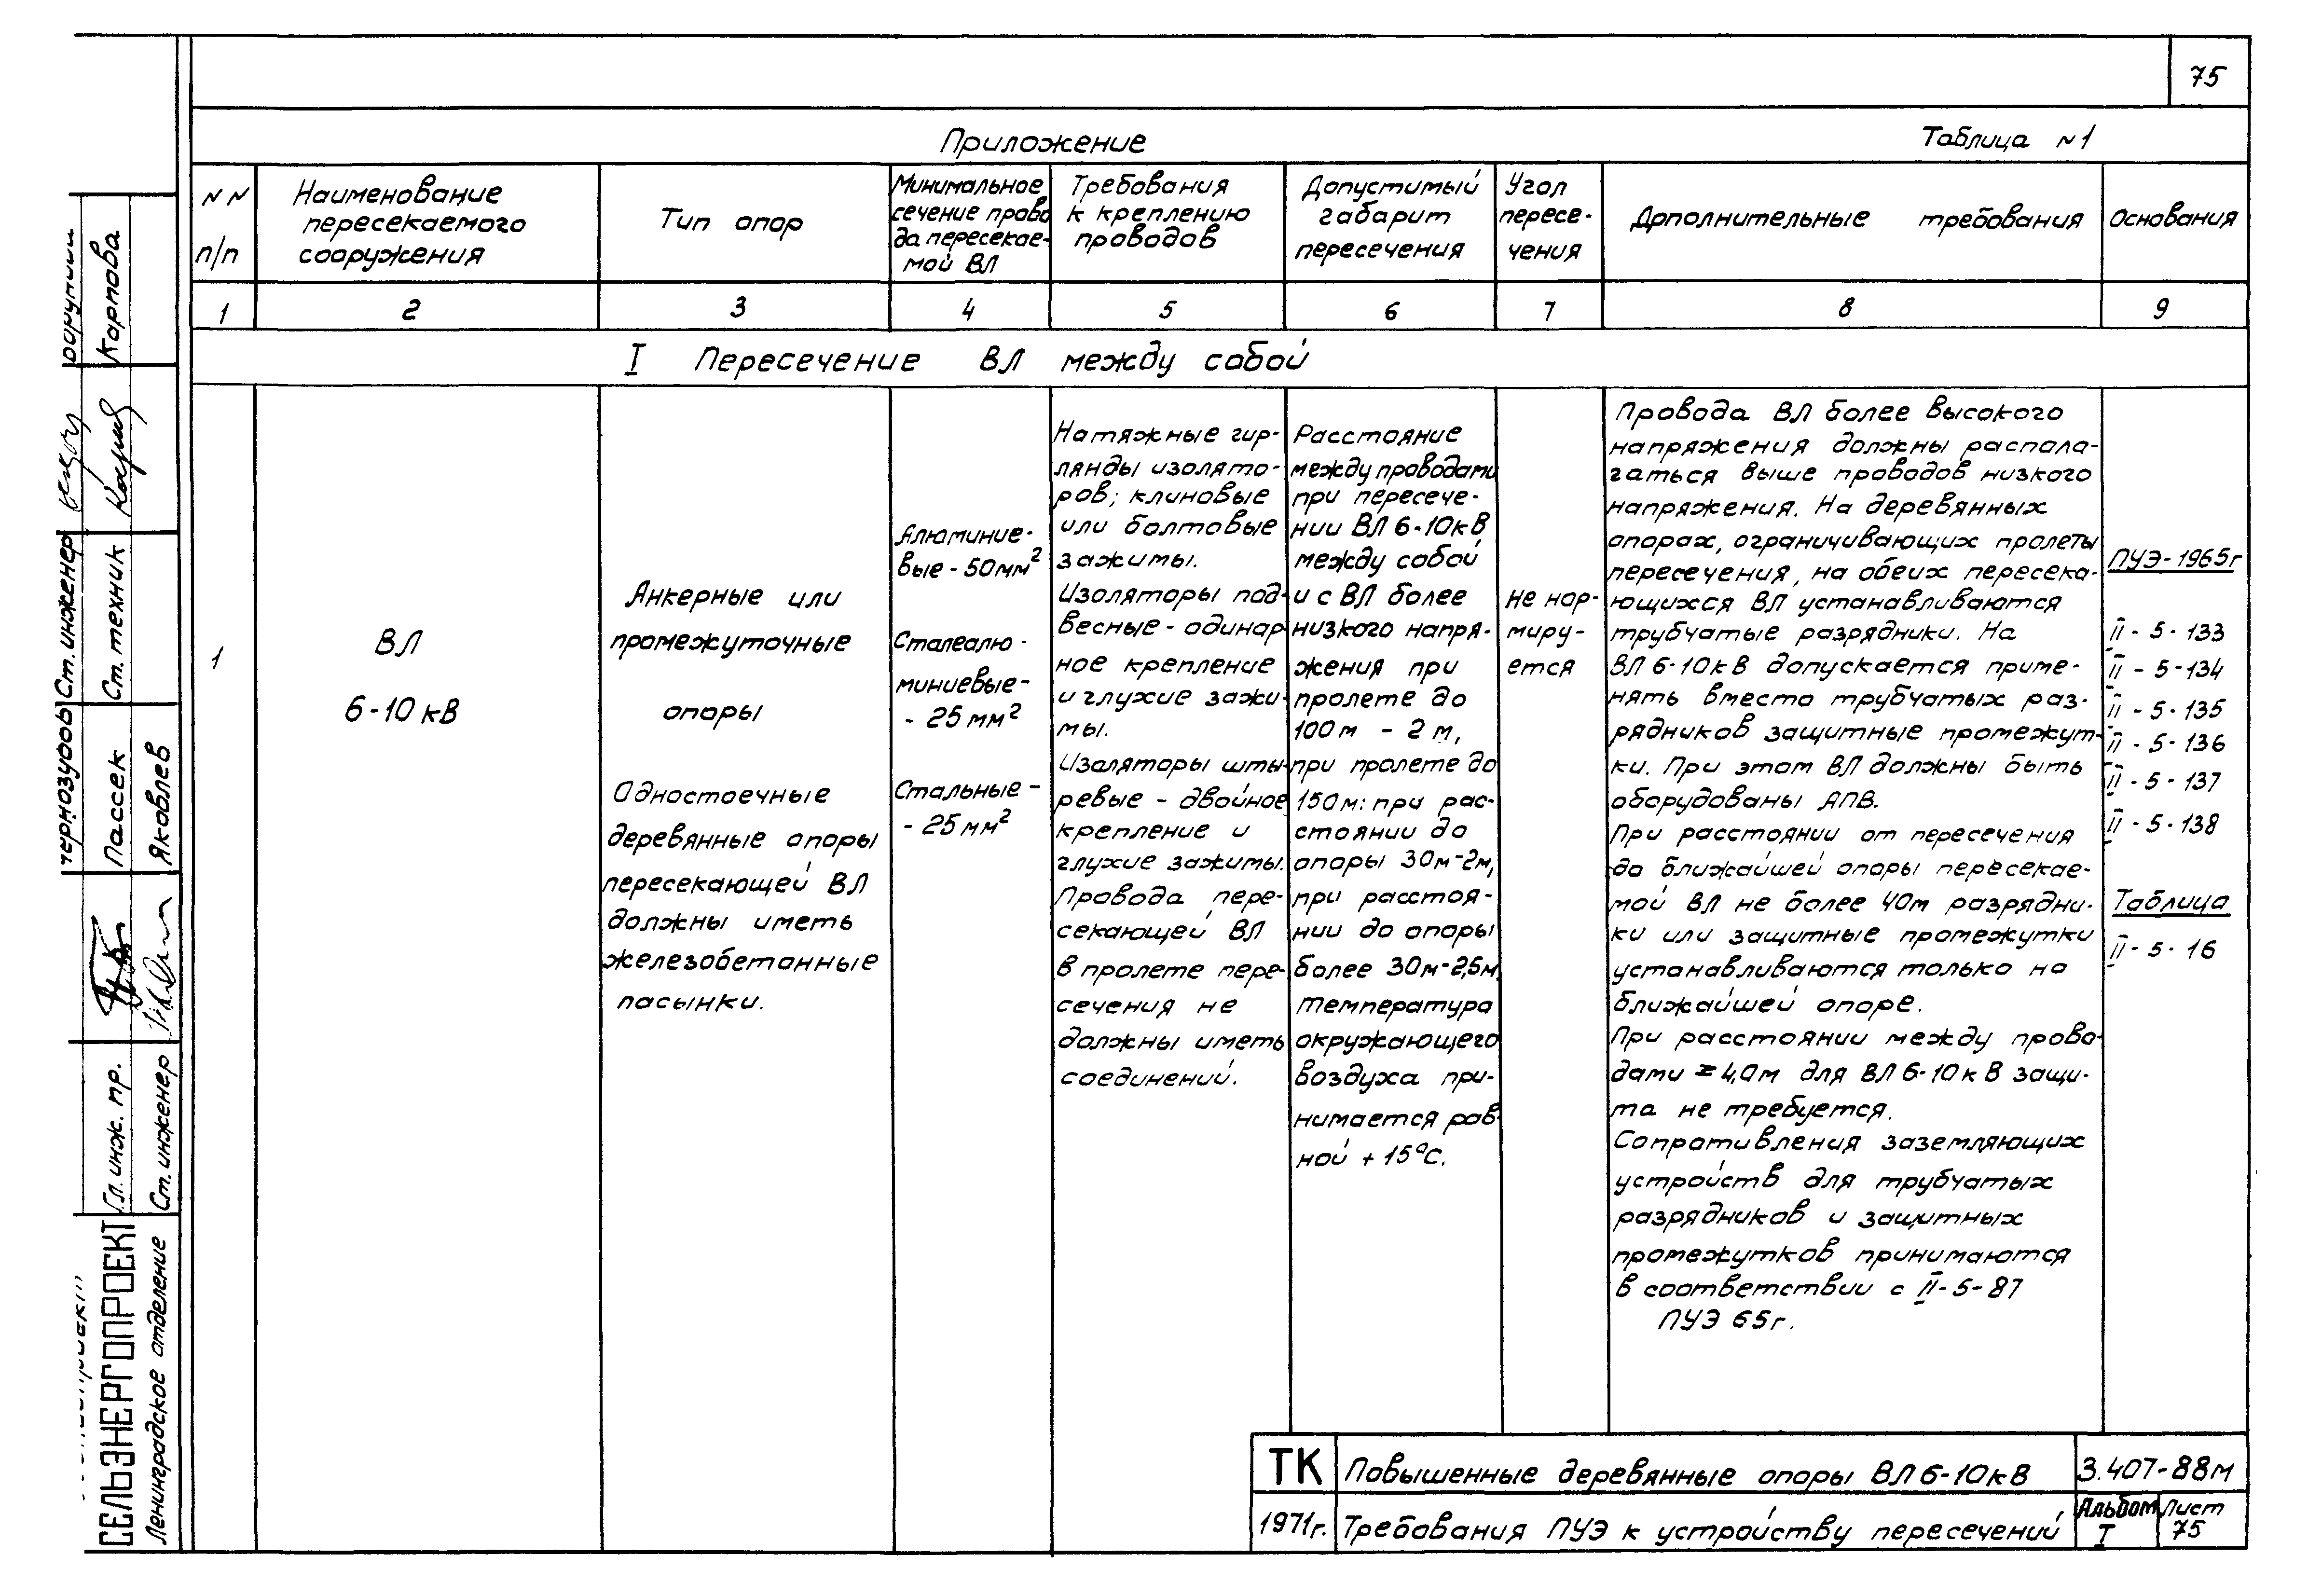 75
Приложение
Таблица N1
NN
п/п
Наименование
пересекаемого
сооружения
Тип опор
Минимальное
сечение прово
да пересекае-
мой ВЛ
Требования
к креплению
проводов
Допустимый
габарит
пересечения
Угол
пересе-
чения
Дополнительные требования
Основания
1
2
3
4
5
6
7
8
9
I Пересечение ВЛ между собой
1
ВЛ
6-10 кВ
Анкерные или
промежуточные
опоры
Одностоечные
деревянные опоры
пересекающей ВЛ
должны иметь
железобетонные
пасынки.
Алюминие-
вые - 50мм²
Сталеалю-
миниевые-
- 25 мм²
Стальные -
- 25 мм²
Натяжные гир-
лянды изолято-
ров; клиновые
или болтовые
зажимы.
Изоляторы под-
весные - одинар
ное крепление
и глухие зажи-
мы.
Изоляторы шты-
ревые - двойное
крепление и
глухие зажимы.
Провода пере-
секающей ВЛ
в пролете пере-
сечения не
должны иметь
соединений.
Расстояние
между проводами
при пересече-
нии ВЛ 6-10кВ
между собой
и с ВЛ более
низкого напря-
жения при
пролете до
100м - 2 м,
при пролете до
150м: при рас-
стоянии до
опоры 30м-2м,
при расстоя-
нии до опоры
более 30м-2,5м,
температура
окружающего
воздуха при-
нимается рав-
ной + 15°С.
Не нор-
миру-
ется
Провода ВЛ более высокого
напряжения должны распола-
гаться выше проводов низкого
напряжения. На деревянных
опорах, ограничивающих пролеты
пересечения, на обеих пересека-
ющихся ВЛ устанавливаются
трубчатые разрядники. На
ВЛ 6-10кВ допускается приме-
нять вместо трубчатых раз-
рядников защитные промежут-
ки. При этом ВЛ должны быть
оборудованы АПВ.
При расстоянии от пересечения
до ближайшей опоры пересекае-
мой ВЛ не более 40м разрядни-
ки или защитные промежутки
устанавливаются только на
ближайшей опоре.
При расстоянии между прово-
дами ≥ 4,0м для ВЛ 6-10кВ защи-
та не требуется.
Сопротивления заземляющих
устройств для трубчатых
разрядников и защитных
промежутков принимаются
в соответствии с II-5-87
ПУЭ 65г.
ПУЭ-1965г
II - 5 - 133
II - 5 - 134
II - 5 - 135
II - 5 - 136
II - 5 - 137
II - 5 - 138
Таблица
II - 5 - 16
ТК
Повышенные деревянные опоры ВЛ 6-10кВ
3.407-88м
1971г.
Требования ПУЭ к устройству пересечений
Альбом
I
Лист
75
СЕЛЬЭНЕРГОПРОЕКТ
Ленинградское отделение
Гл. инж. пр.
Ст. инженер
Пассек
Яковлев
Ст. инженер
Ст. техник
Карпова